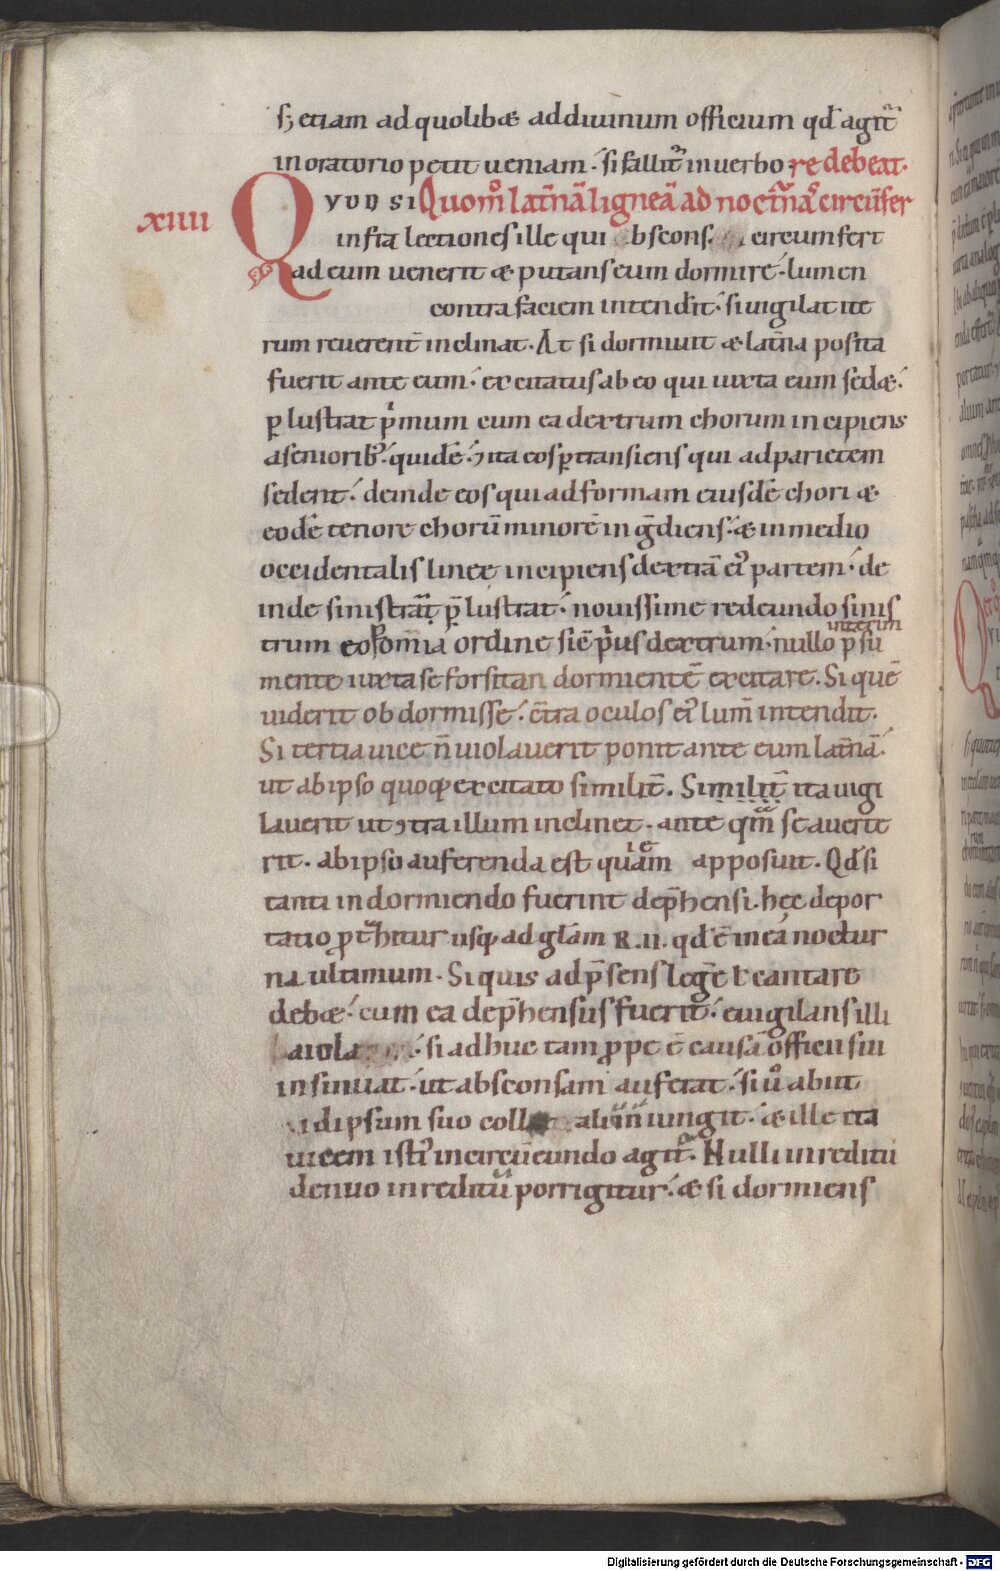 sꝫ etiam ad quolibæ ad diuinum officium qd̄ agit᷑
in oratorio petit ueniam · si fallit᷑ in uerbo · re debeat ·
xiiii QVOD SI Quom̊ lat̄nā ligneā ad noct᷑nā circūfer
infra lectiones ille qui bscons circumfert
ad eum uenerit æ putans eum dormire · lumen
contra faciem intendit · si uigilat ite
rum reuerent̄ inclinat · At si dormiuit æ lat̄na posita
fuerit ante eum · excitatus ab eo qui iuxta eum sedæ ·
ꝑlustrat pͥmum cum ea dextrum chorum incipiens
a seniorib; · quidē · ⁊ ita eos ꝑtransiens qui ad parietem
sedent · deinde eos qui ad formam eiusdē chori æ
eodē tenore chorū minorē ingᷓdiens · æ in medio
occidentalis lineę incipiens dextrā ei᷒ partem · de
inde sinistrā ꝑlustrat · nouissime redeundo sinis
trum eos omnia ordine sic̄ pͥus dextrum · nullo p̄su interim
mente iuxta se forsitan dormientē excitare · Si quē
uiderit obdormisse · c̄tra oculos ei᷒ lum̄ intendit ·
Si tertia uice n̄ uiolauerit ponit ante eum lat̄nā ·
ut ab ipso quoqꝫ excitato similit̄ · Similit̄ ita uigi
lauerit ut ⁊tra illum inclinet · ante qm̄ se auerte
rit · ab ipso auferenda est quiā eam apposuit · Qd̄ si
tanti in dormiendo fuerint dep̄hensi · hęc depor
tatio ꝓt᷑hitur usqꝫ ad glām R · ii · qd̄ ē in ea noctur
na ultimum · Si quis ad p̄sens legēe ł cantare
debæ · cum ea dep̄hensus fuerit · euigilans illi
aiola · si adhuc tam ꝓpe ē causā officii sui
insinuat · ut absconsam auferat · si ů abiit
idipsum suo coll alii iniungit · æ ille ita
uicem isti᷒ in circūeundo agit᷑ · Nulli in reditu
denuo in reditū porrigitur · æ si dormiens
Digitalisierung gefördert durch die Deutsche Forschungsgemeinschaft - DFG